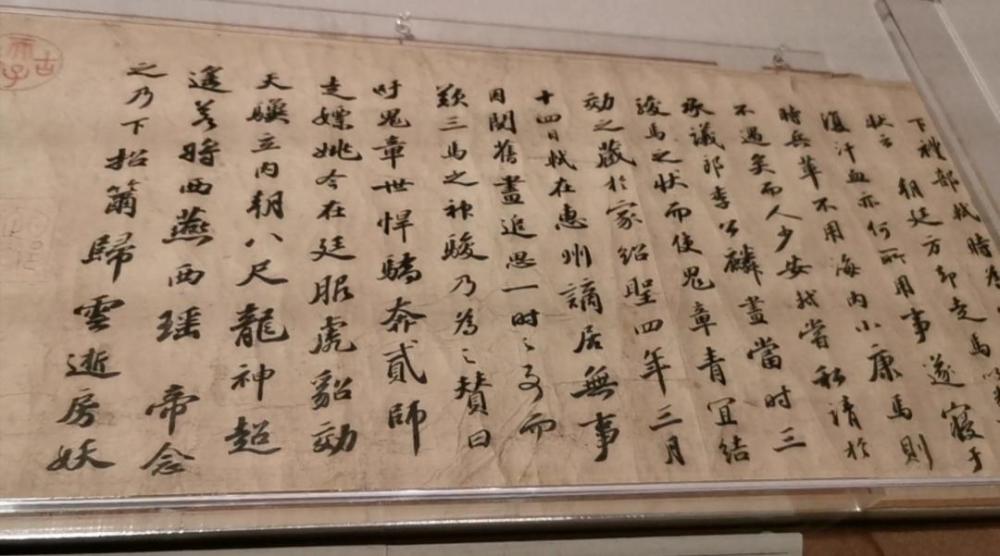 下禮部軾時為
狀云 朝廷方却走馬
復汗血亦何所用事遂寢于
時兵革不用海內小康馬則
不遇矣而人少安軾嘗私請於
承議郎李公麟畫當時三
駿馬之狀而使鬼章青宜結
効之藏於家紹聖四年三月
十四日軾在惠州謫居無事
因閱舊畫追思一時之事而
歎三馬之神駿乃為之贊曰
吁鬼章世悍驕奔貳師
走嫖姚今在廷服虎貂効
天驥立內朝八尺龍神超
遙若將西燕西瑤 帝念
之乃下招籋歸雲逝房妖